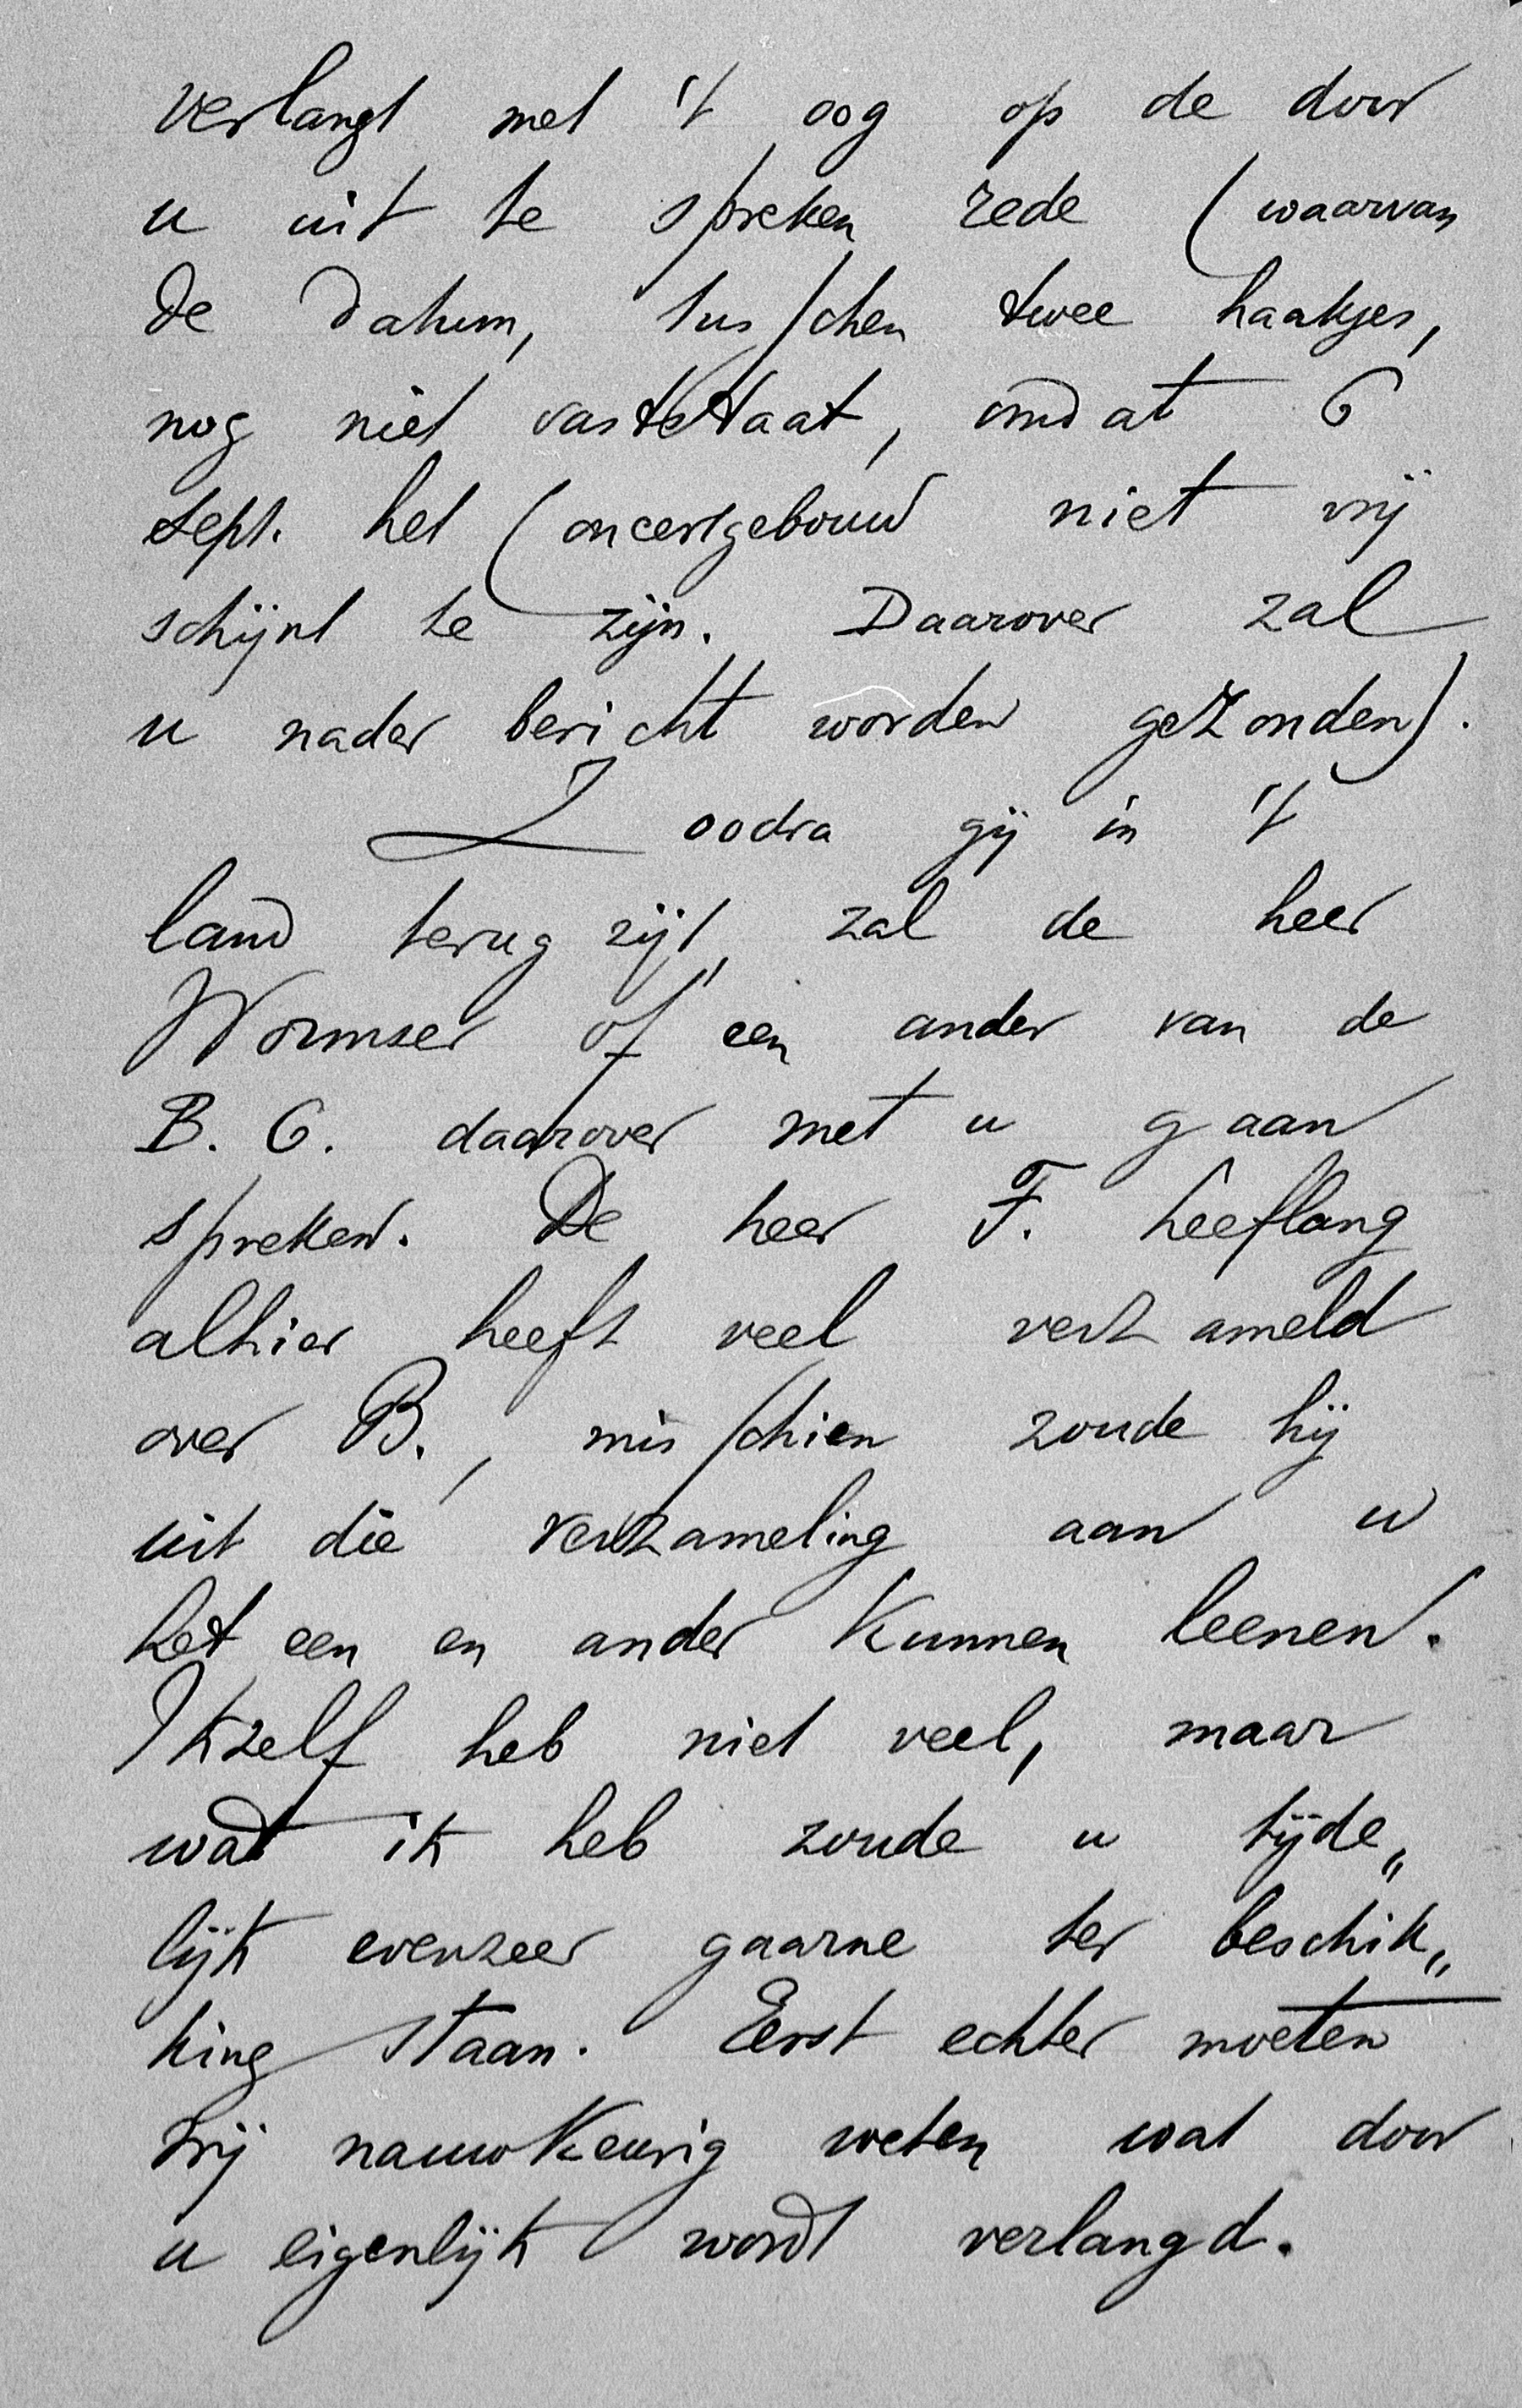 verlangt met 't oog op de door
u uit te spreken rede (waarvan
de datum, tusschen twee haakjes,
nog niet vaststaat, omdat 6
Sept. het Concertgebouw niet vrij
schijnt te zijn. Daarover zal
u nader bericht worden gezonden).
Zoodra gij in 't
land terug zijt, zal de heer
Wormser of een ander van de
B. C. daarover met u gaan
spreken. De heer F. Leeflang
alhier heeft veel verzameld
over B., misschien zoude hij
uit die verzameling aan u
het een en ander kunnen leenen.
Ikzelf heb niet veel, maar
wat ik heb zoude u tijde„
lijk evenzeer gaarne ter beschik„
king staan. Eerst echter moeten
wij nauwkeurig weten wat door
u eigenlijk wordt verlangd.